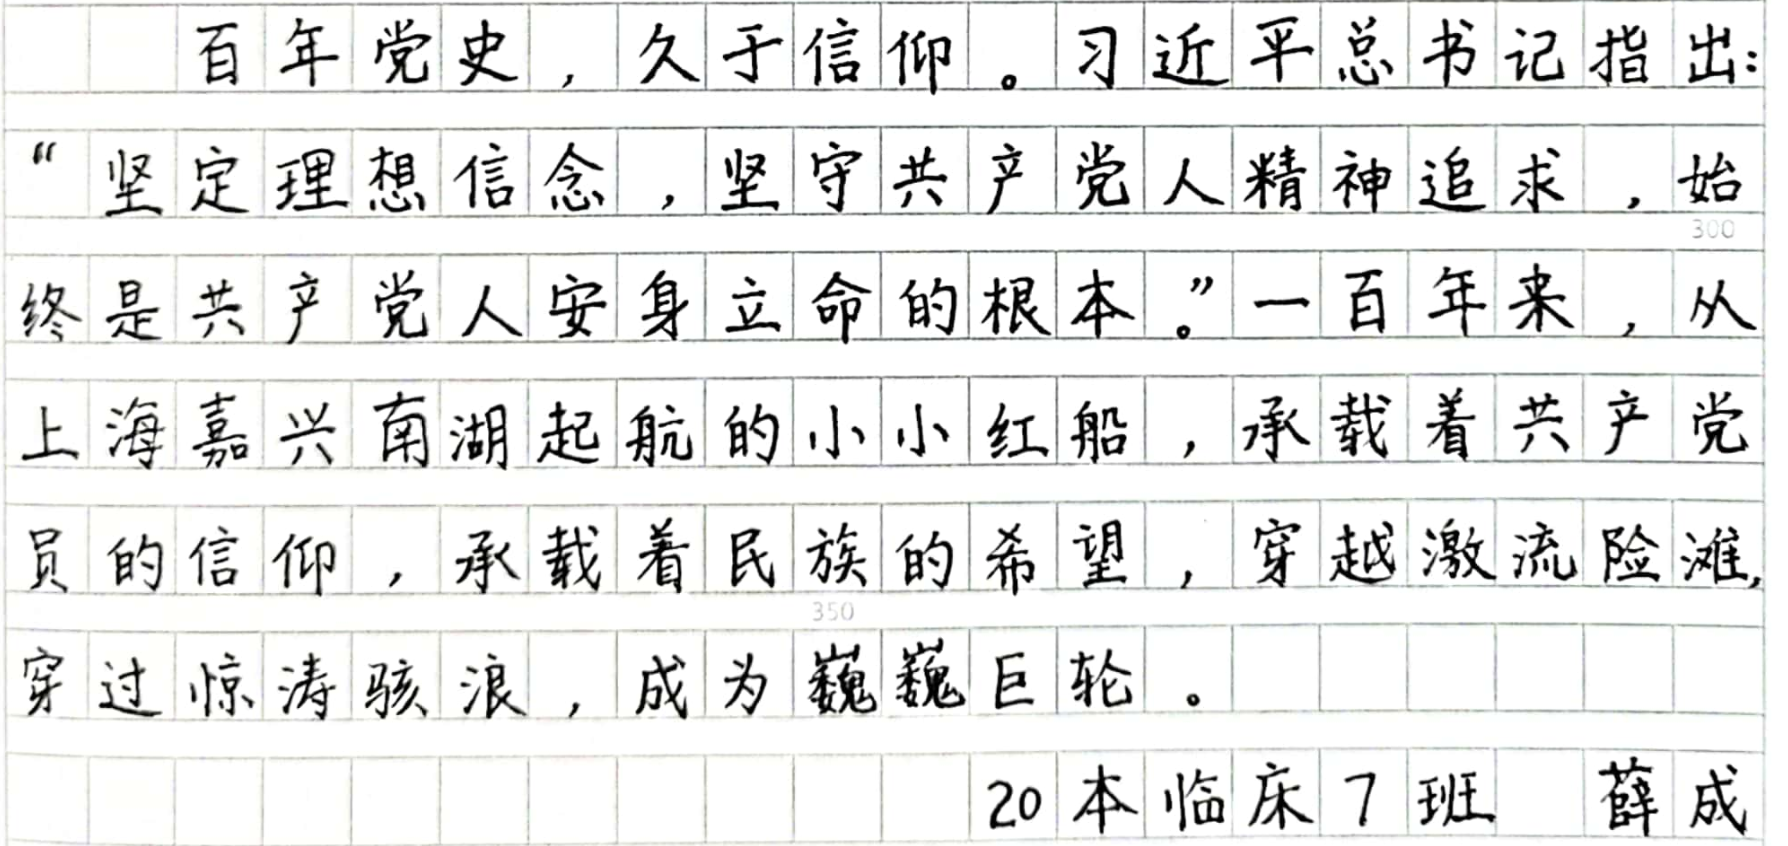 百年党史，久于信仰。习近平总书记指出：
“坚定理想信念，坚守共产党人精神追求，始
300
终是共产党人安身立命的根本。”一百年来，从
上海嘉兴南湖起航的小小红船，承载着共产党
员的信仰，承载着民族的希望，穿越激流险滩，
350
穿过惊涛骇浪，成为巍巍巨轮。
20本临床7班 薛成